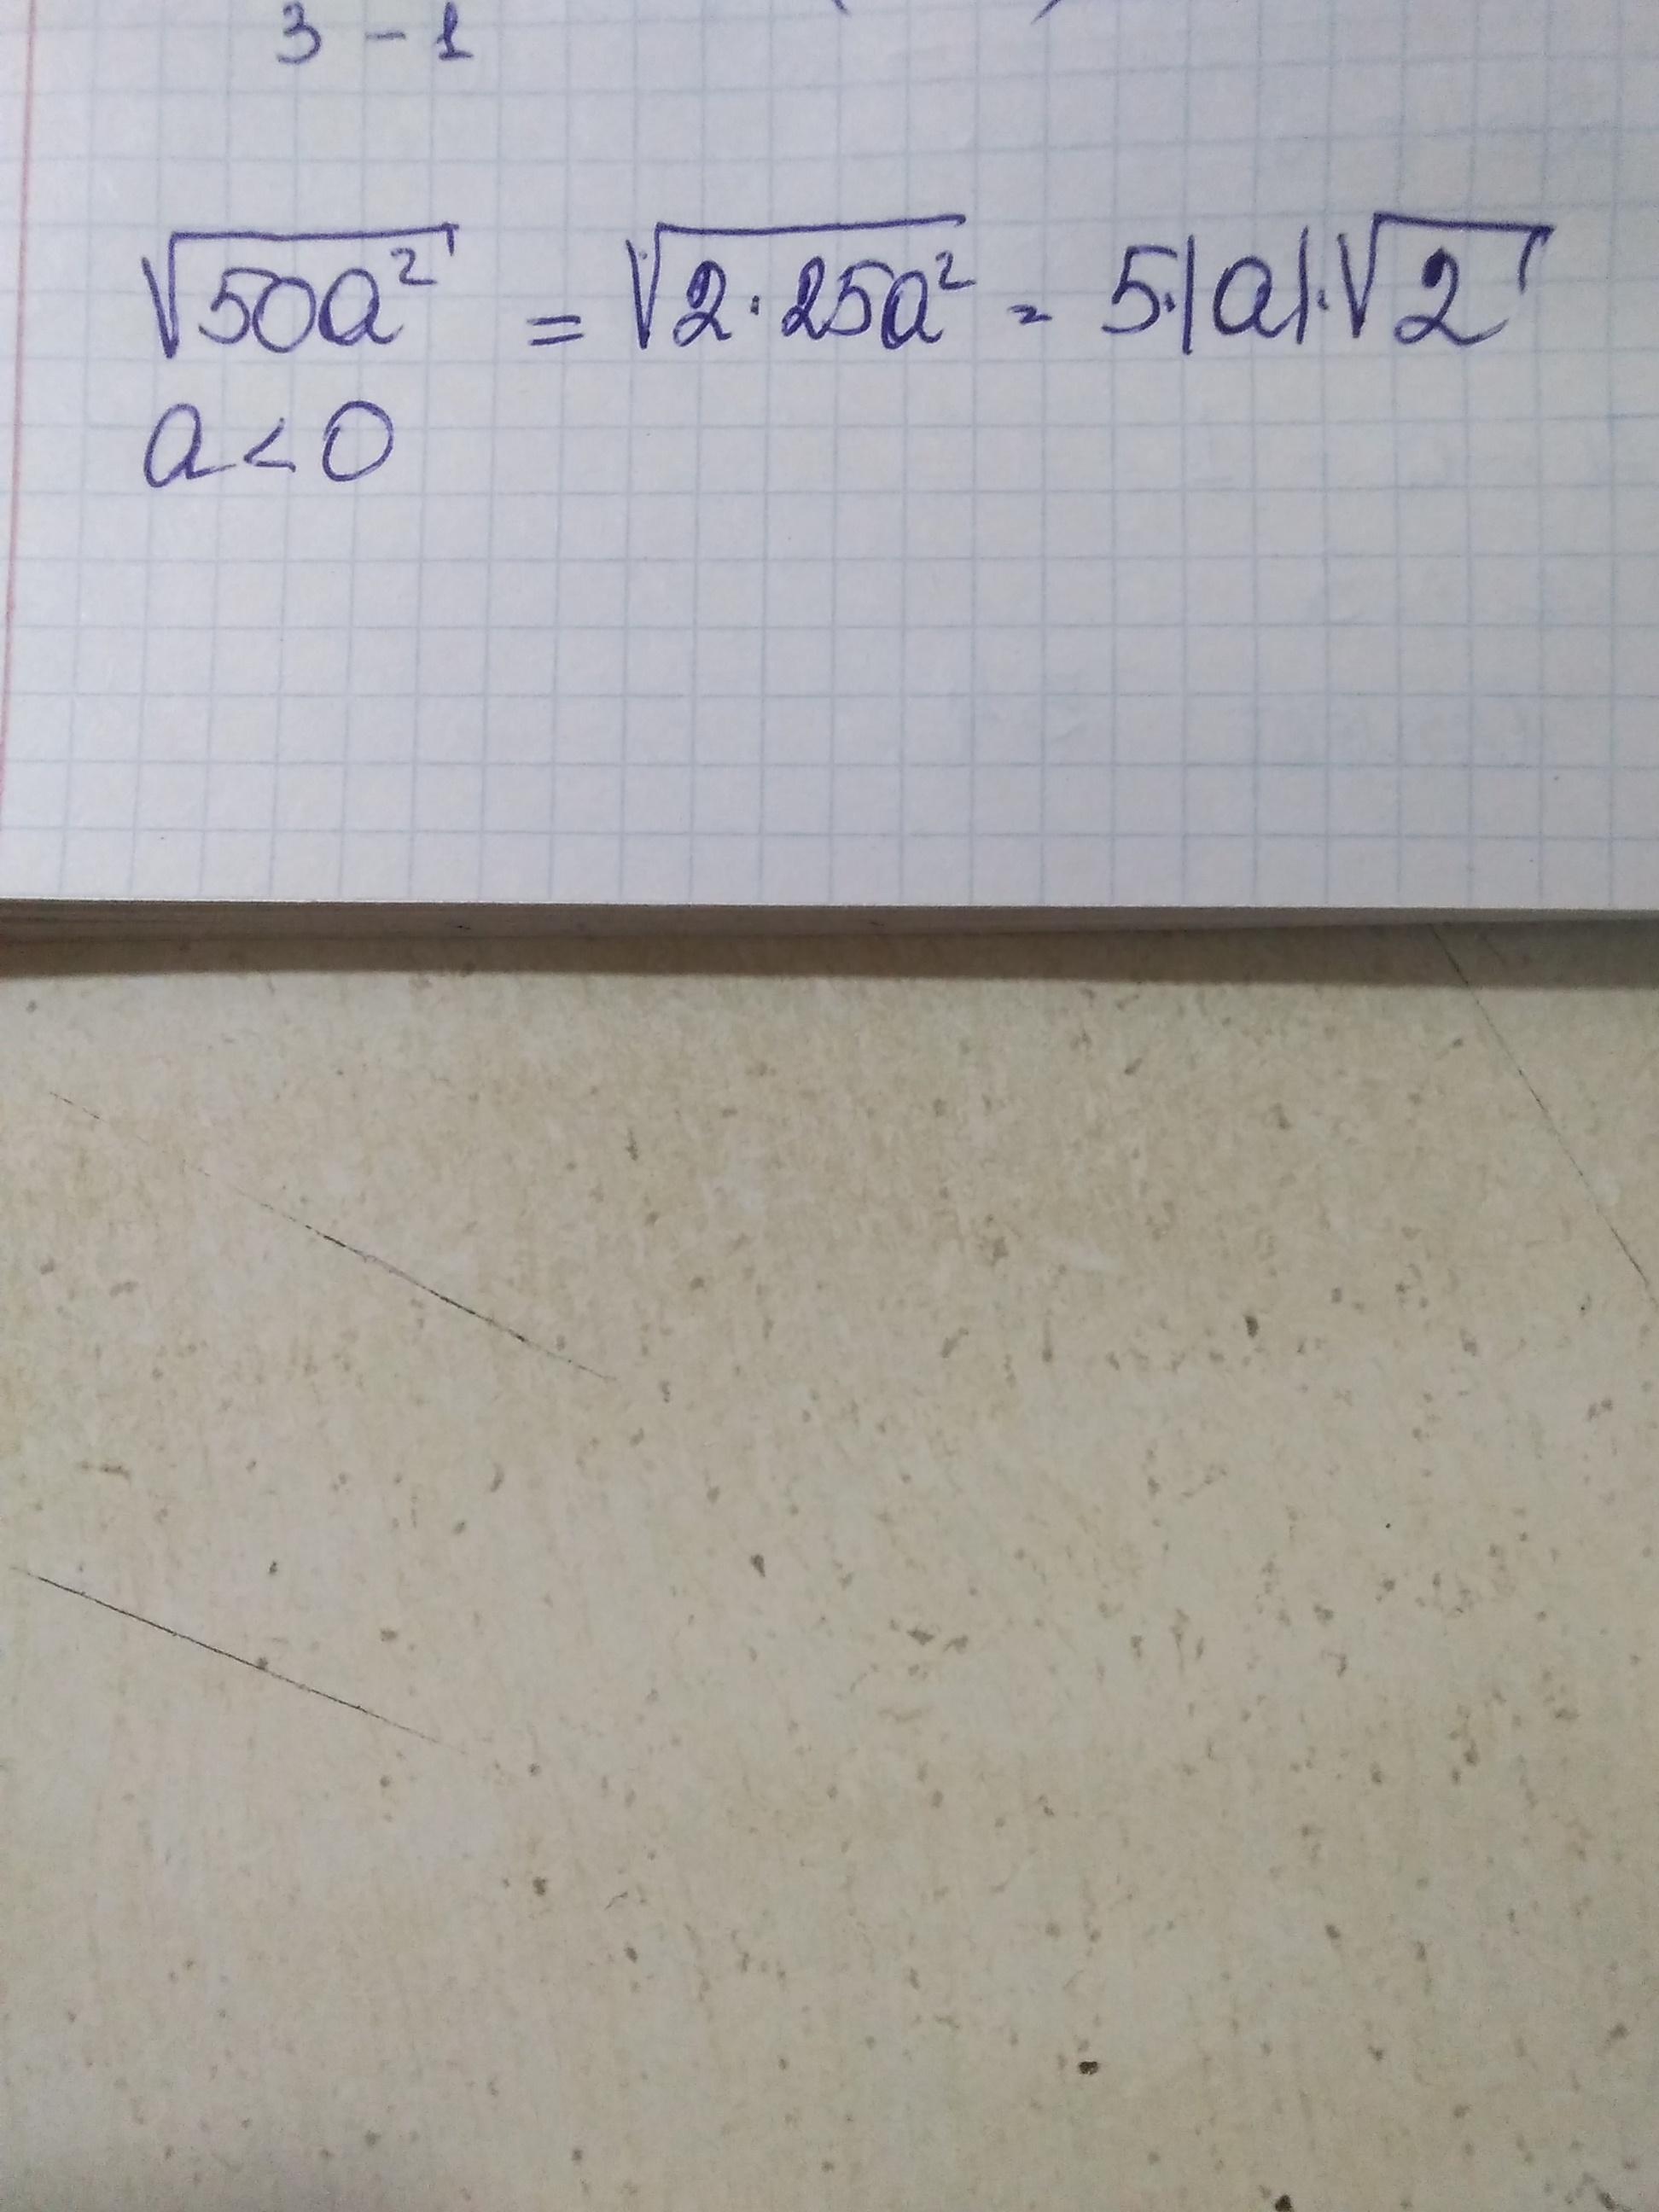 3 - 1
√50a² = √2·25a² = 5·|a|·√2
a < 0